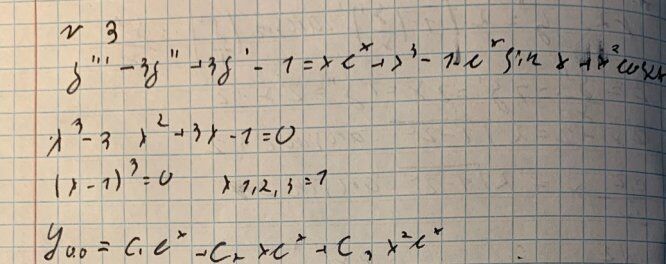 N 3
y''' - 3y'' + 3y' - 1 = xe^x + x^3 - 1 + e^x sin x + x^2 cos x
λ^3 - 3 λ^2 + 3λ - 1 = 0
(λ - 1)^3 = 0 λ 1,2,3 = 1
y o.o = C1 e^x + C2 xe^x + C3 x^2 e^x